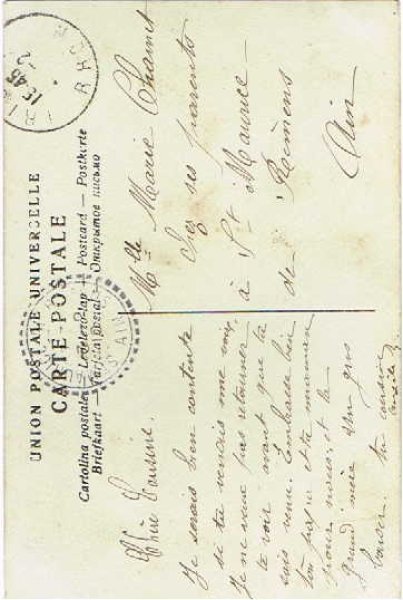 UNION POSTALE UNIVERSELLE
CARTE POSTALE
Cartolina postale — Levelező-Lap — Postcard — Postkarte
Briefkaart — Tarjeta postal — Открытое письмо
15 45
RHONE
AIN
Chère Cousine.
Je serais bien contente
si tu venais me voir,
Je ne veux pas retourner
te voir avant que tu
sois venu. Embrasse bien
ton papa et ta maman
pour nous, et la
grand mère son gros
baiser. ta cousine
Mlle Marie Chanet
chez ses parents
à St Maurice
de Rémens
Ain